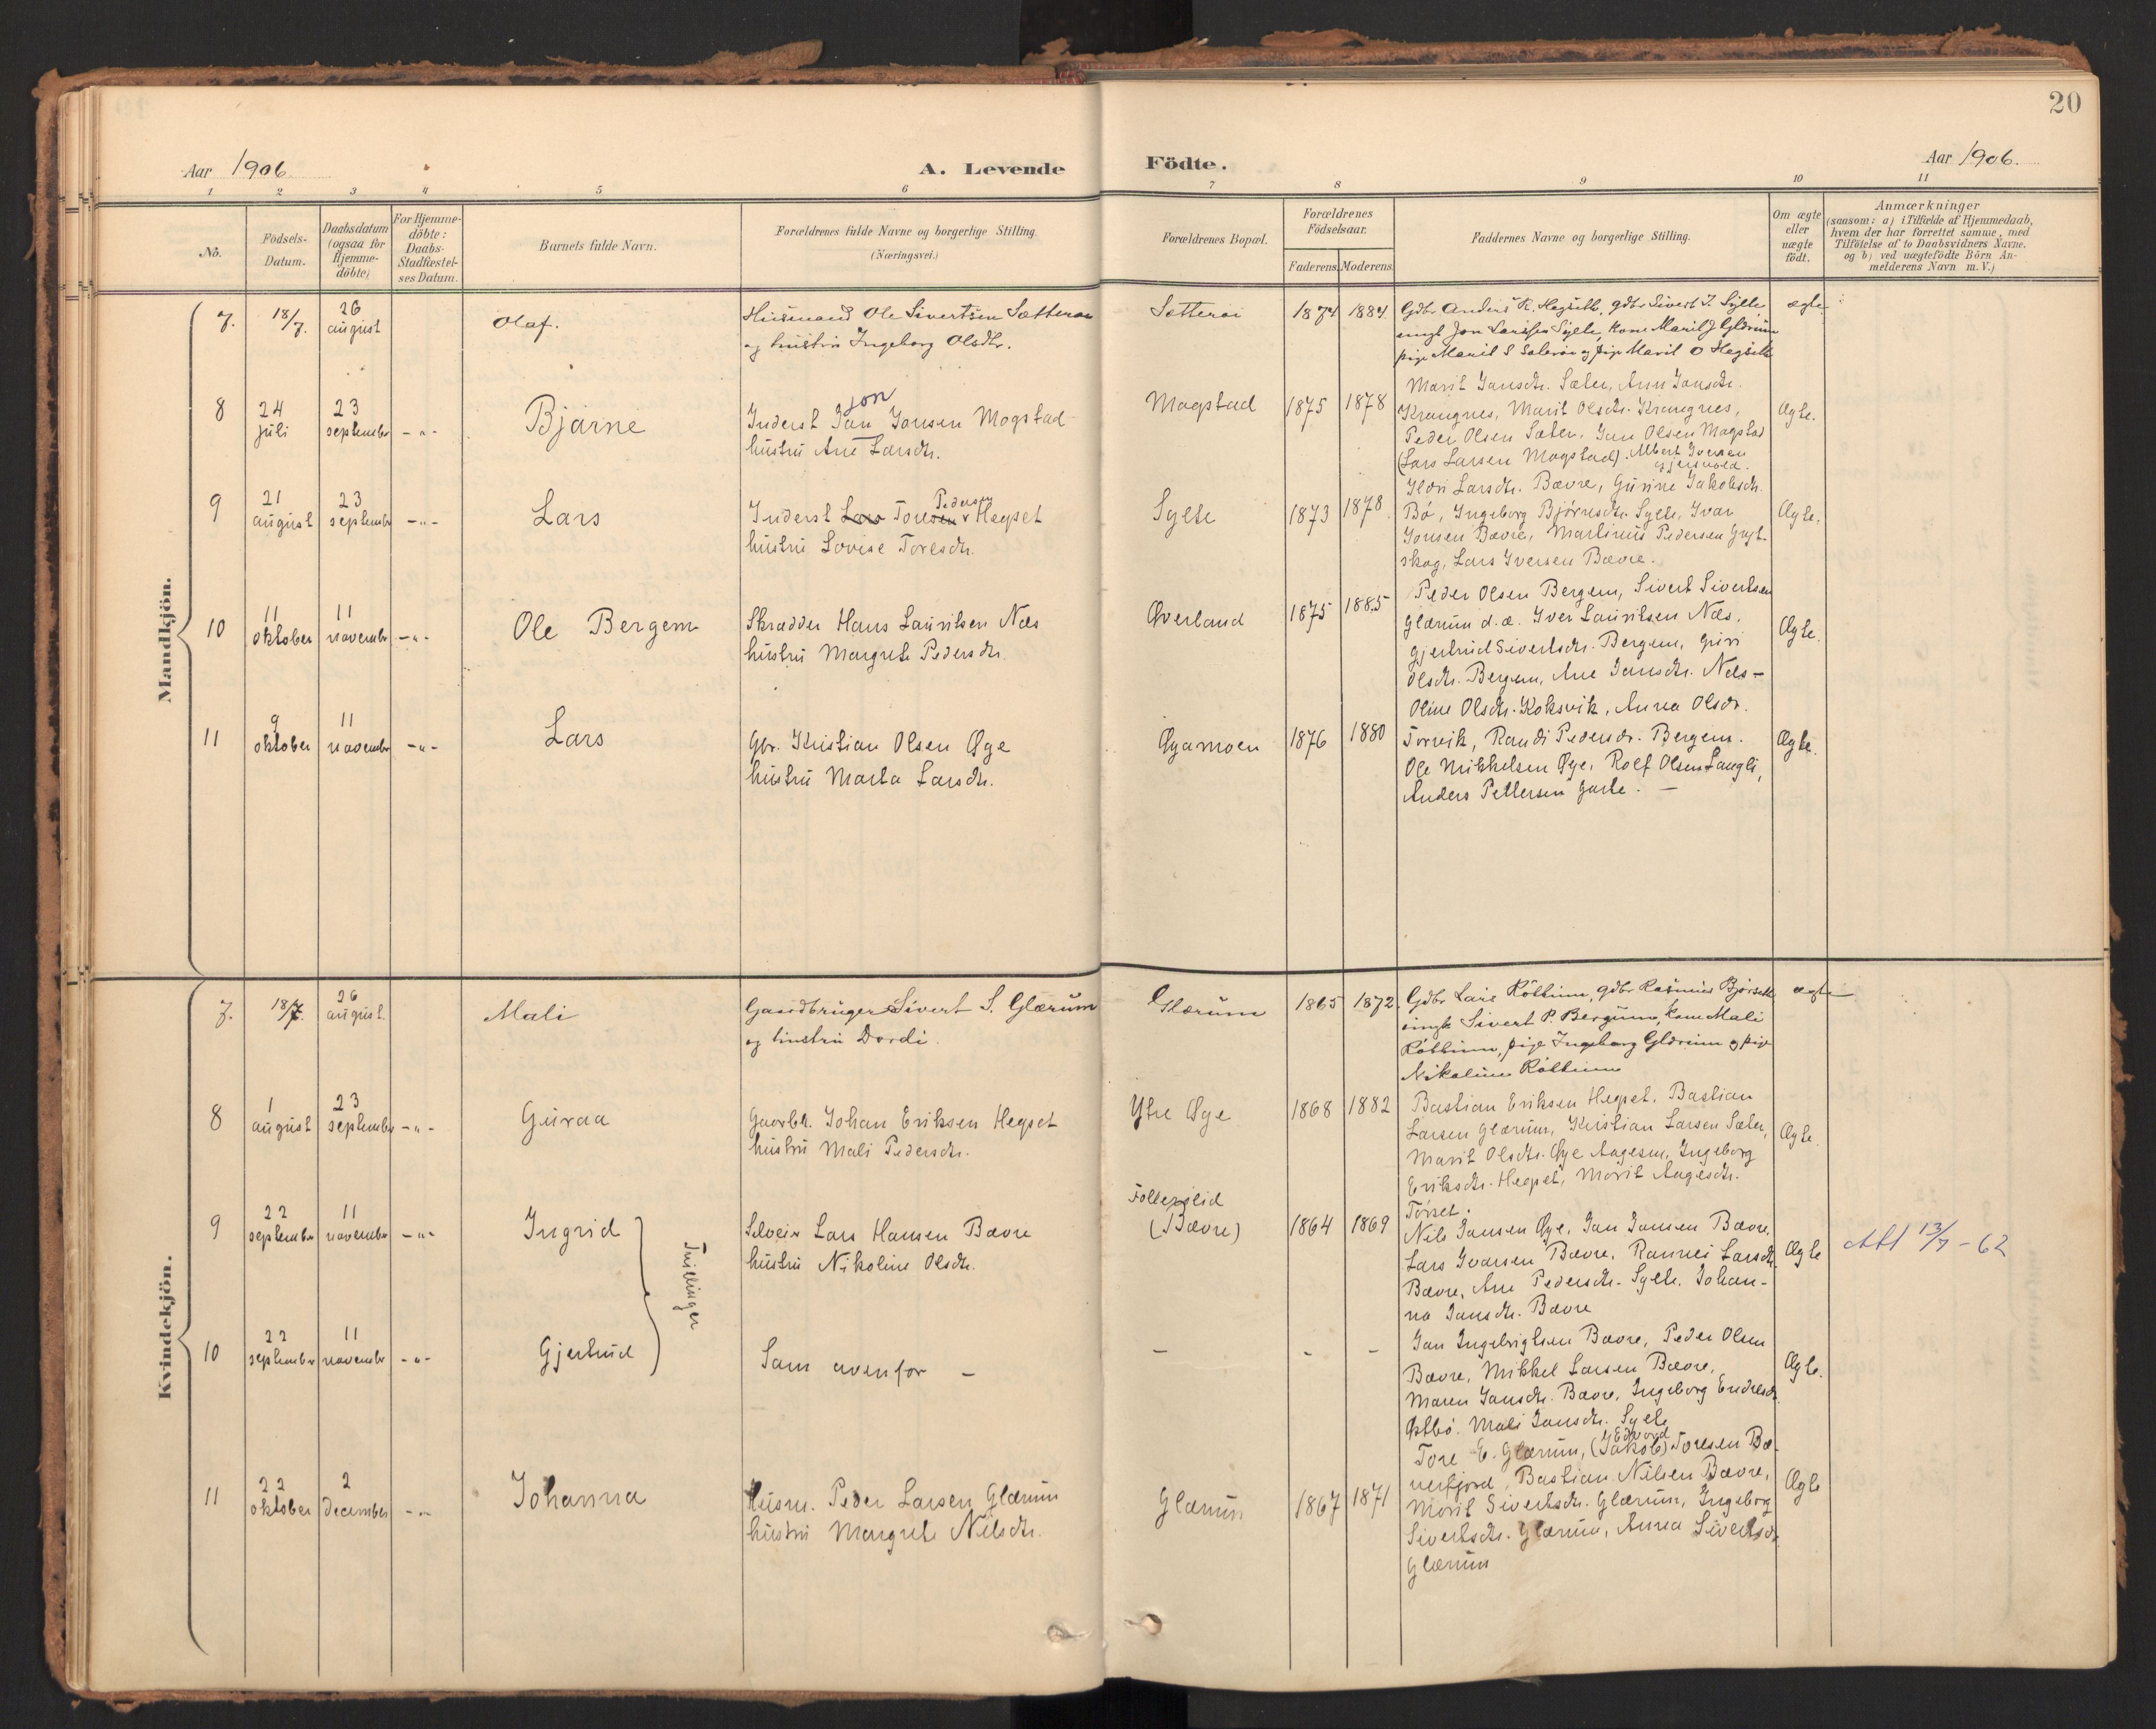 20
Aar 1906.
A. Levende
Födte.
Aar 1906.
1 2 3 4 5 6 7 8 9 10 11
No.
Födsels-
Datum.
Daabsdatum
(ogsaa for
Hjemme-
döbte)
For Hjemme-
döbte:
Daabs-
Stadfæstel-
ses Datum.
Barnets fulde Navn.
Forældrenes fulde Navne og borgerlige Stilling.
(Næringsvei.)
Forældrenes Bopæl.
Forældrenes
Födselsaar.
Faderens. Moderens.
Faddernes Navne og borgerlige Stilling.
Om ægte
eller
uægte
födt.
Anmærkninger
(saasom: a) i Tilfælde af Hjemmedaab,
hvem der har forrettet samme, med
Tilföielse af to Daabsvidners Navne.
og b) ved uægtefödte Börn An-
melderens Navn m. V.)
Mandkjön.
7. 18/7. 26 august
Olaf.
Husmand Ole Sivertsen Sætterøi
og hustru Ingeborg Olsdtr.
Sætterøi
1874 1884
Gdbr Anders R. Hegseth, gdbr Sivert J. Sylte,
ungk Jon Larssen Sylte, kone Marit J Glærum
pige Marit S Sæterøi og pige Marit O Hegseth
ægte
8 24 juli 23 september -"-
Bjarne
Jon
Inderst Jan Jonsen Mogstad
hustru Ane Larsdtr.
Mogstad
1875 1878
Marit Jansdtr. Sæter, Ann Jansdtr.
Krangnes, Marit Olsdtr. Krangnes,
Peder Olsen Sæter, Jan Olsen Mogstad
(Lars Larsen Mogstad). Albert Iversen
Gjersvold.
Ægte.
9 21 august 23 september -"-
Lars
Pedersen
Inderst Lars Toresen Hegset
hustru Lovise Toresdtr.
Sylte
1873 1878
Ildri Larsdtr. Bævre, Gurine Jakobsdtr.
Bø, Ingeborg Bjørnsdtr. Sylte, Ivar
Jonsen Bævre, Martinus Pedersen Gryt-
skog, Lars Iversen Bævre.
Ægte.
10 11 oktober 11 november -"-
Ole Bergem
Skrædder Hans Lauritsen Næs
hustru Margrete Pedersdtr.
Øverland
1875 1885
Peder Olsen Bergem, Sivert Sivertsen
Glærum d.æ. Iver Lauritsen Næs,
Gjertrud Sivertsdtr. Bergem, Guri
Olsdtr. Bergem, Ane Jansdtr. Næs-
Ægte.
11 9 oktober 11 november -"-
Lars
Gbr. Kristian Olsen Øye
hustru Marta Larsdtr.
Øyamoen
1876 1880
Oline Olsdtr. Koksvik, Anna Olsdr.
Torvik, Randi Pedersdr. Bergem.
Ole Mikkelsen Øye, Rolf Olsen Langli,
Anders Pettersen Garte. -
Ægte.
Kvindekjön.
7. 18/7. 26 august.
Mali
Gaardbruger Sivert S. Glærum
og hustru Dordi.
Glærum
1865 1872
Gdbr Lars Röttum, gdbr Rasmus Bjørseth
ungk Sivert P. Bergum, kone Mali
Röttum, pige Ingeborg Glærum og pige
Nikoline Röttum
ægte
8 1 august 23 september -"-
Guraa
Gaardbr. Johan Eriksen Hegset
hustru Mali Pedersdtr.
Ytre Øye
1868 1882
Bastian Eriksen Hegset. Bastian
Larsen Glærum, Kristian Larsen Sæter,
Marit Olsdtr. Øye Aagesen, Ingeborg
Eriksdtr. Hegset, Marit Aagesdtr.
Torset.
Ægte.
9 22 september 11 november -"-
Ingrid
Tvillinger
Selveier Lars Hansen Bævre
hustru Nikoline Olsdtr.
(Bævre)
1864 1869
Nils Jansen Øye, Jan Jansen Bævre,
Lars Ivarsen Bævre, Rannei Larsdtr.
Bævre, Ane Pedersdtr. Sylte, Johan-
na Jansdtr. Bævre
Ægte
13/7 - 62
10 22 september 11 november -"-
Gjertrud
Sam ovenfor -
- - -
Jan Ingebrigtsen Bævre, Peder Olsen
Bævre, Mikkel Larsen Bævre,
Maren Jansdtr. Bævre, Ingeborg Endresdtr.
Østbø. Mali Jansdtr. Sylte
Ægte.
11 22 oktober 2 december -"-
Johanna
Husm. Peder Larsen Glærum
hustru Margrete Nilsdtr.
Glærum
1867 1871
Edvard
Tore E. Glærum, (Jakob) Toresen Bæ-
verfjord, Bastian Nilsen Bævre,
Marit Sivertsdtr. Glærum, Ingeborg
Sivertsdtr. Glærum, Anna Sivertsdr.
Glærum
Ægte